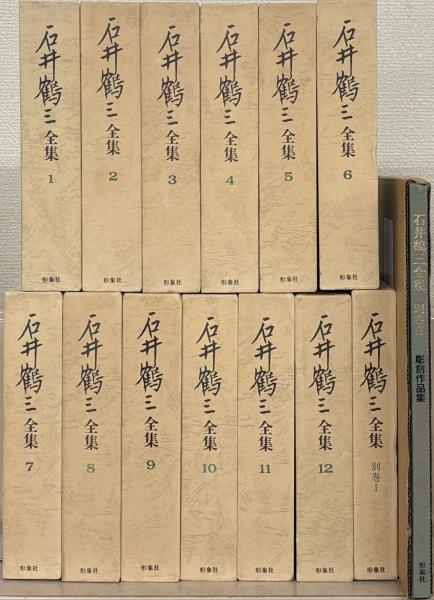 石井鶴三全集 1 形象社
石井鶴三全集 2 形象社
石井鶴三全集 3 形象社
石井鶴三全集 4 形象社
石井鶴三全集 5 形象社
石井鶴三全集 6 形象社
石井鶴三全集 7 形象社
石井鶴三全集 8 形象社
石井鶴三全集 9 形象社
石井鶴三全集 10 形象社
石井鶴三全集 11 形象社
石井鶴三全集 12 形象社
石井鶴三全集 別巻Ⅰ 形象社
石井鶴三全集 別巻Ⅱ 彫刻作品集 形象社